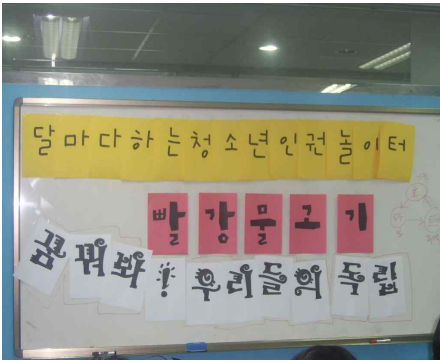 달마다하는청소년인권놀이터
빨강물고기
꿈꿔봐!우리들의독립